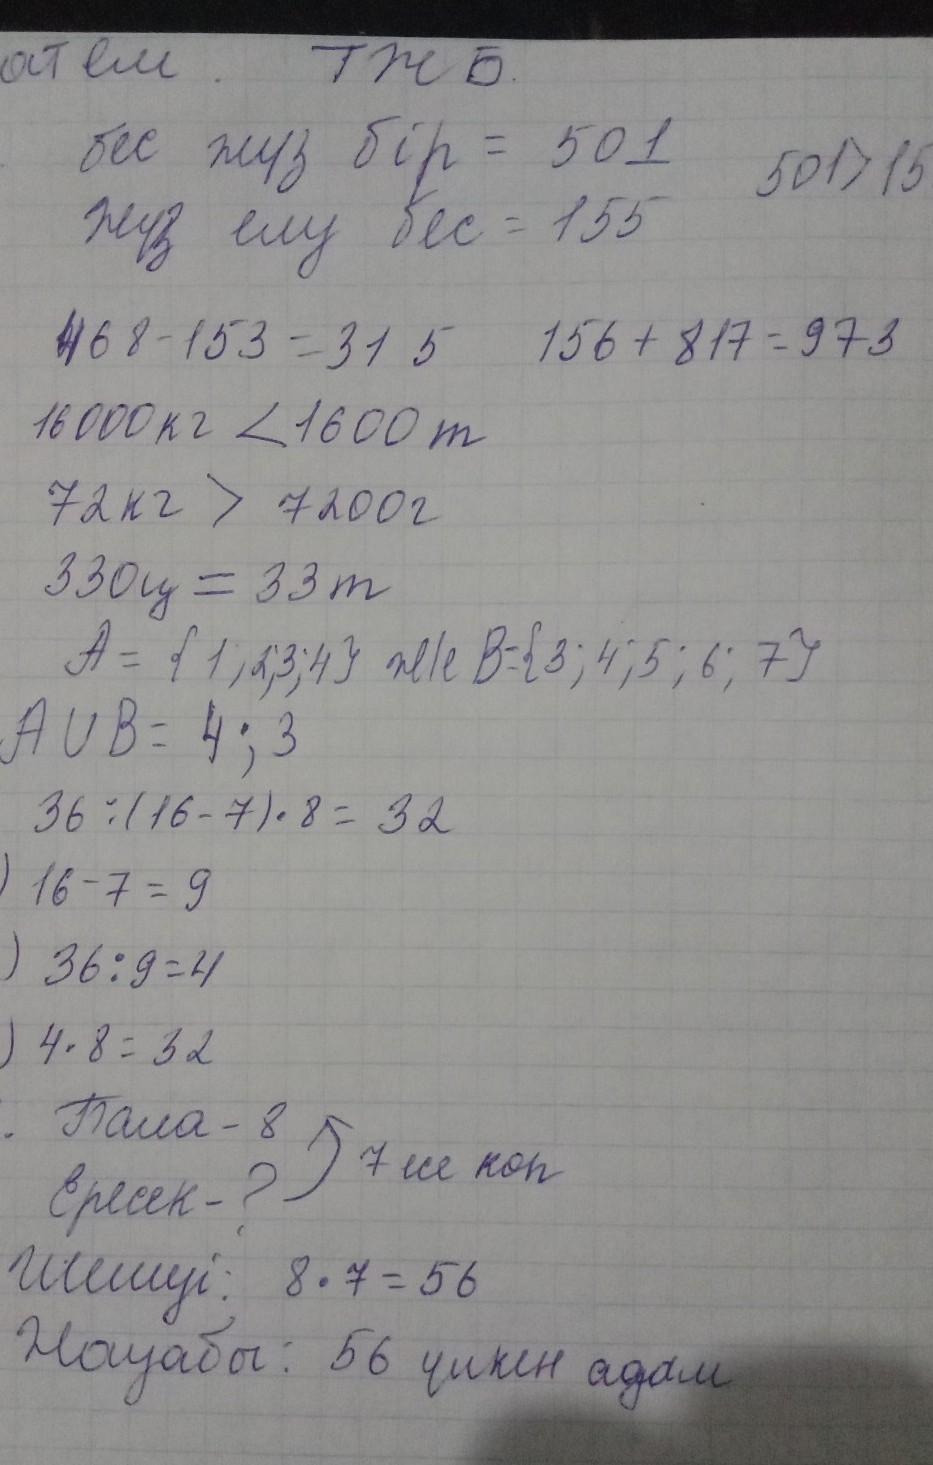 атем. ТЖБ.
бес жүз бір = 501
501>15
жүз елу бес = 155
468-153=315 156+817=973
16000кг <1600т
72кг > 7200г
330ц = 33т
A = {1;2;3;4} ж/е B={3;4;5;6;7}
A U B = 4;3
36:(16-7)·8= 32
) 16-7=9
) 36:9=4
) 4·8=32
. Бала-8
Ересек-? 7 есе коп
Шешуі: 8·7=56
Жауабы: 56 үлкен адам